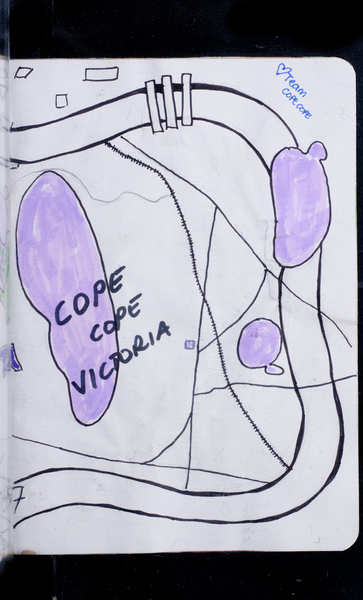 ♡Team
COPECOPE
COPE
COPE
VICTORIA